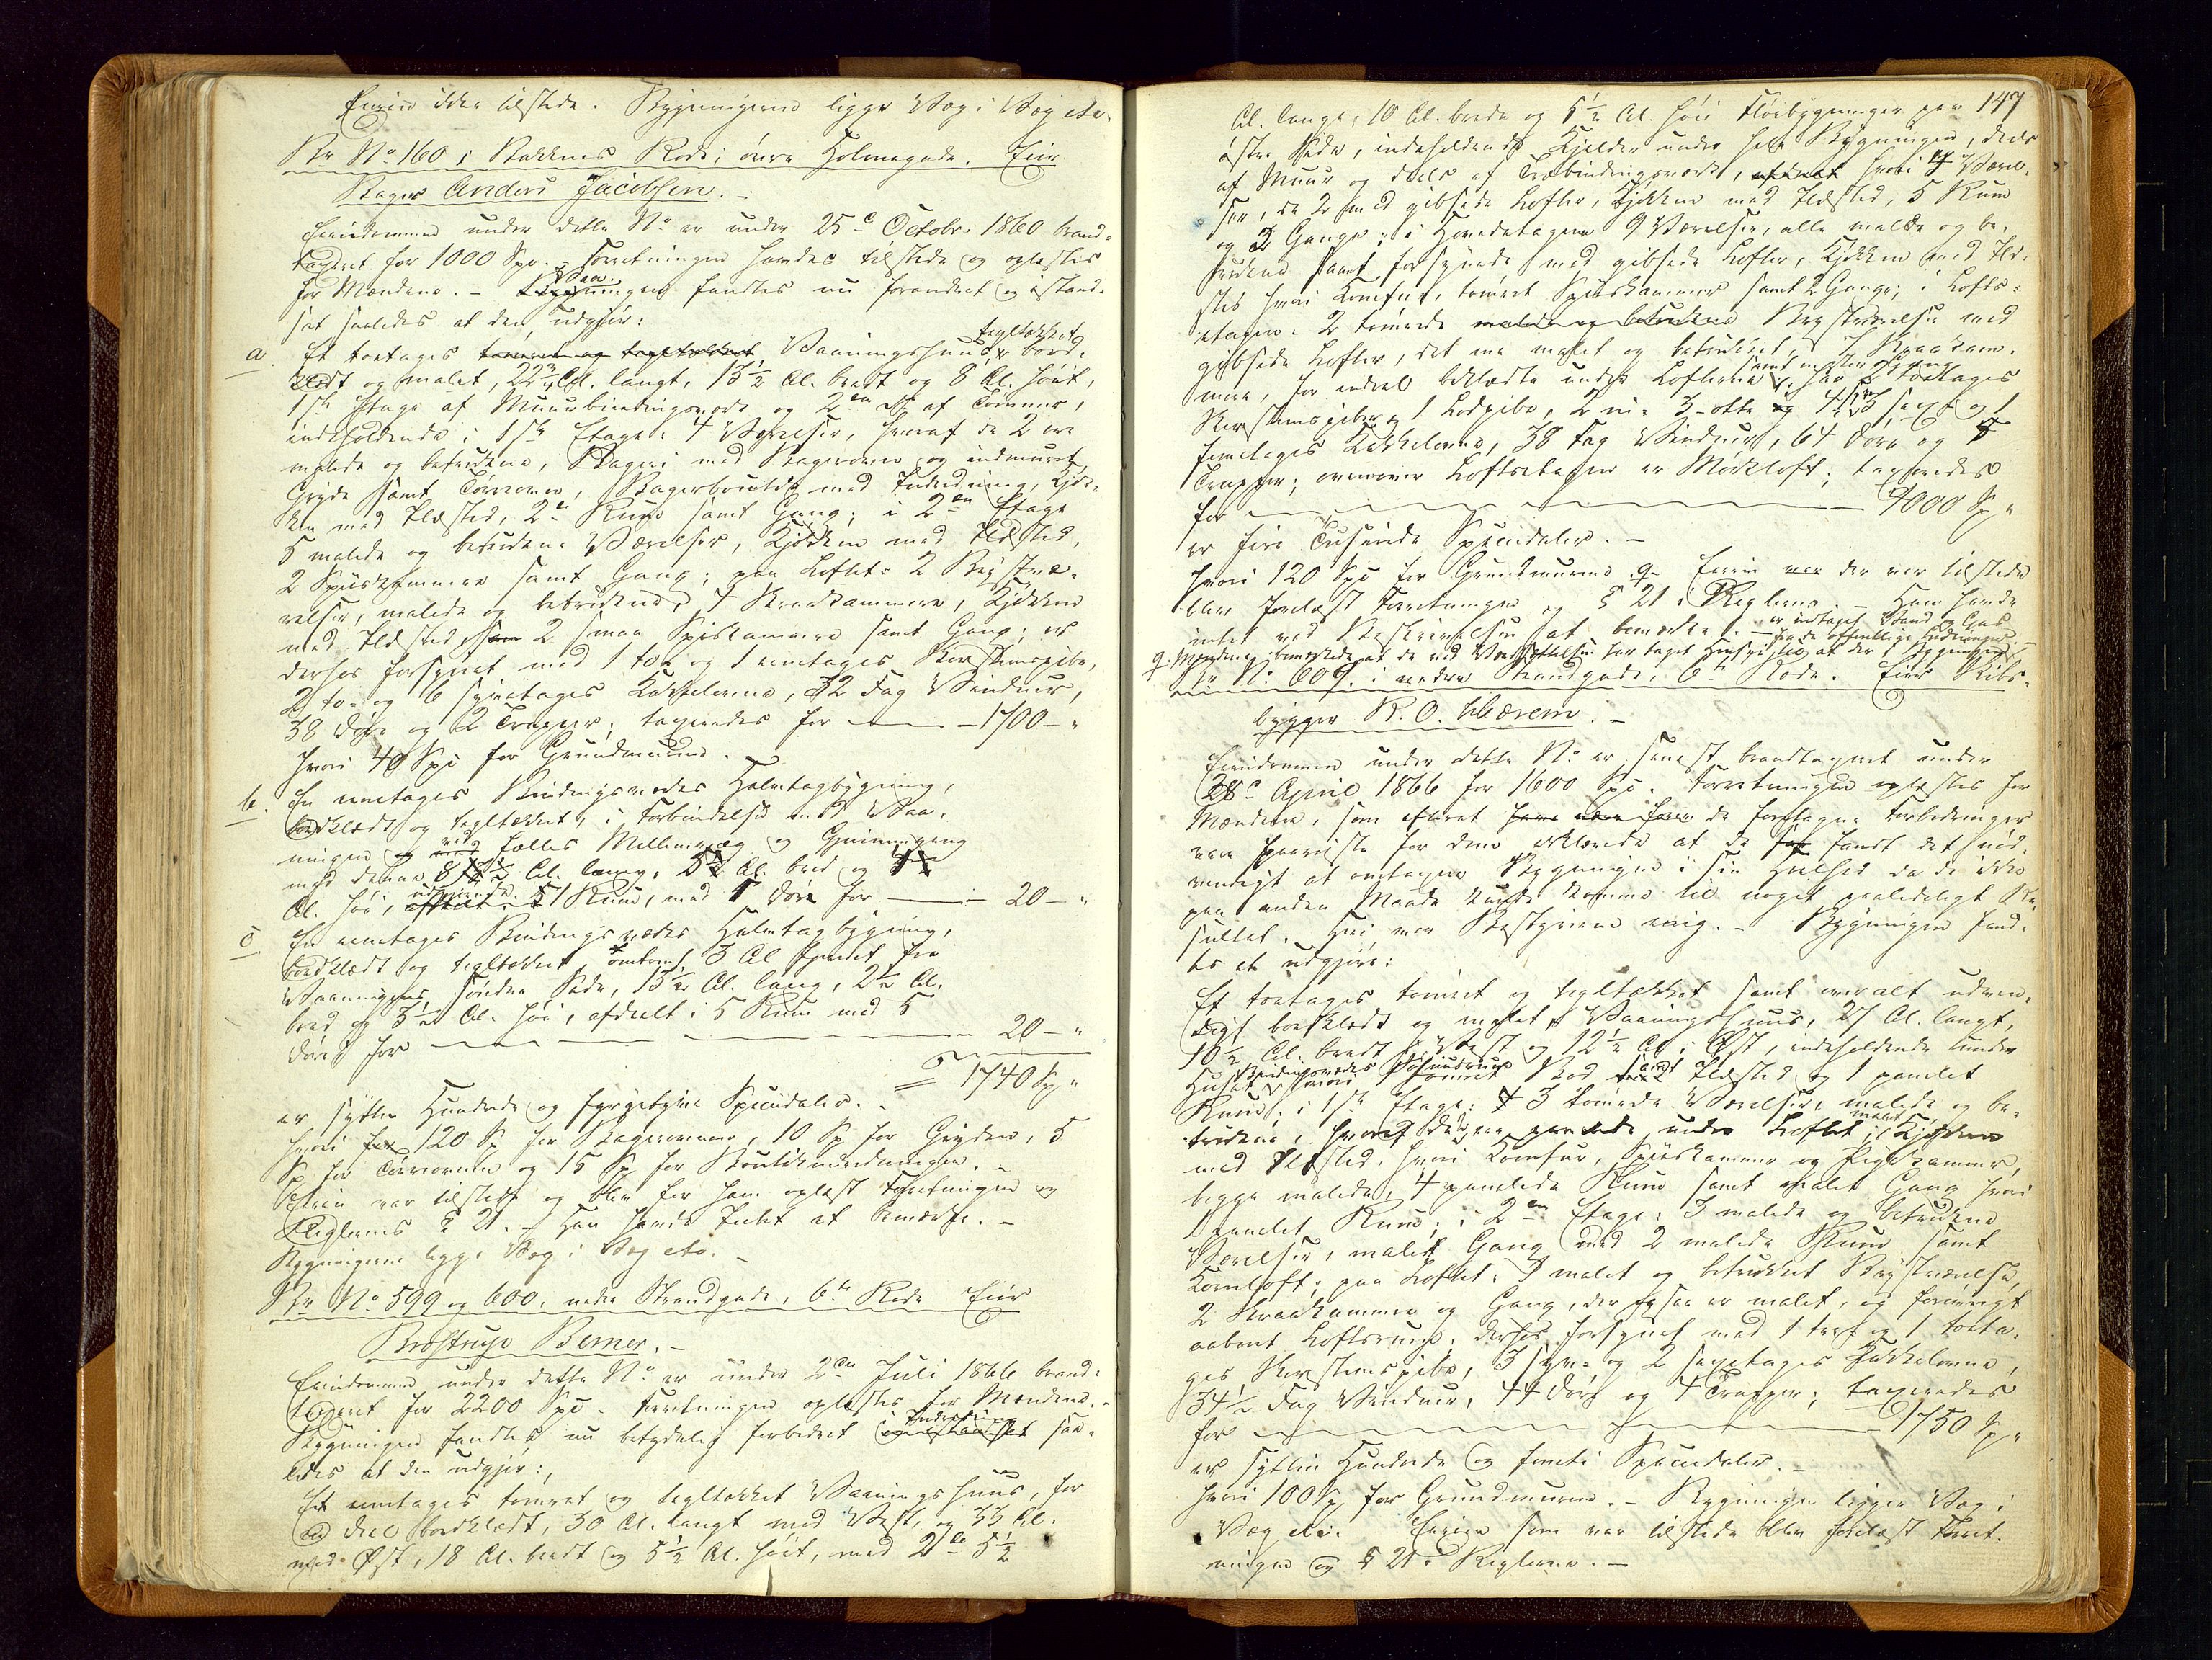 Eieren ikke tilstede. Bygningerne ligge Væg i Væg etc.
Br No 160 i Bakkens Rode; øvre Holmegade. Eier
Bager Anders Jacobsen. -
Eiendommen under dette No er under 25de Octobr. 1860 brand-
taxeret for 1000 Spd. - Forretningen havdes tilstede og oplæstes
for Mændene. - Bygningen fandtes nu forandret og istand-
sat saaledes at den udgjør:
a Et toetages tømret og tegltækket Vaaningshuus, tegltækket, bord-
klædt og malet, 22 3/4 Al. langt, 13 1/2 Al. bredt og 8 Al. høit,
1ste Etage af Muurbindingsværk og 2den do af Tømmer,
indeholdende i 1ste Etage: 4 Værelser, hvoraf de 2 ere
malede og betrukne, Bageri med Bagerovn og indmuret
Gryde samt Tørreovn, Bagerboutik med Indredning, Kjøk-
ken med Ildsted, 2de Rum samt Gang; i 2den Etage
5 malede og betrukne Værelser, Kjøkken med Ildsted,
2 Spiiskammere samt Gang; paa Loftet: 2 Kvistvæ-
relser, malede og betrukne, 4 Skraakammere, Kjøkken
med Ildsted, 2 smaa Spiskamere samt Gang; er
derhos forsynet med 1 to- og 1 eenetages Skorsteenspibe,
2 to- og 6 eenetages Kakkelovne, 32 Fag Vinduer,
38 Døre og 2 Trapper; taxeredes for — 1700 - "
hvori 40 Spd for Grundmurene.
b. En eenetages Bindingsværkes Halvtagbygning,
bordklædt og tegltækket, i Forbindelse med Vaa-
ningen og med fælles Mellemvæg og Gjennemgang
med denne 8 1/2 Al. lang, 5 1/2 Al. bred og
Al. høi, udgjørende 1 Rum, med 1 Dør for — 20 - "
c En eenetages Bindingsværkes Halvtagbygning,
bordklædt og tegltækket omtrent 3 Al fjernet fra
Vaaningens søndre Side, 13 1/2 Al. lang, 2 1/2 Al.
bred og 3 1/2 Al. høi, afdeelt i 5 Rum med 5
Døre for — 20 - "
= 1740 Sp "
er sytten Hundrede og fyrgetyve Speciedaler. -
hvori for 120 Sp for Bagerovnen, 10 Sp for Gryden, 5
Sp for Tørreovnen og 15 Sp for Boutikindredningen. -
Eieren var tilstede og blev for ham oplæst Forretningen og
Reglernes § 21. - Han havde Intet at bemærke. -
Bygningerne ligge Væg i Væg etc. -
Br No 599 og 600, nedre Strandgade, 6te Rode Eier
Brostrup Berner. -
Eiendommen under dette No er under 2den Juli 1866 brand-
taxeret for 2200 Spd. - Forretningen oplæstes for Mændene. -
Bygningen fandtes nu betydelig forbedret saa-
ledes at den udgjør:
Et eenetages tømret og tegltækket Vaaningshuus, for
en Deel bordklædt, 30 Al. langt mod Vest, og 33 Al.
mod Øst, 18 Al. bredt og 5 1/2 Al. høit, med 2de 5 1/2
147
Al. lange, 10 Al. brede og 5 1/2 Al. høie Fløibygninger paa
østre Side, indeholdende Kjelder under hele Bygningen, deels
af Muur og deels af Træbindingsværk, hvori 4 Værel-
ser, de 2 med gibsede Lofter, Kjøkken med Ildsted, 5 Rum
og 2 Gange; i Hovedetagen 9 Værelser, alle malede og be-
trukne samt forsynede med gibsede Lofter, Kjøkken med Ild-
sted hvori Komfur, tømret Spiiskammer samt 2 Gange; i Lofts-
etagen: 2 tømrede malede og betrukne Kvistværelser med
gibsede Lofter, det ene malet og betrukket, 7 Skraakam-
mere, for endeel beklædte under Lofterne samt malet Gang; har toetages
Skorsteenspiber, 1 Lodpibe, 2 ni- 3 otte og 4 sex og 1
femetages Kakkelovne, 38 Fag Vinduer, 64 Døre og
Trapper; ovenover Loftsetagen er Mørkloft; taxeredes
for — 4000 Sp "
er fire Tusinde Speciedaler. -
hvori 120 Spd for Grundmurene. q. Eieren der var tilstede
blev forelæst Forretningen og § 21 i Reglerne. - Han havde
intet ved Beskrivelsen at bemærke. - er indtaget Vand og Gas
fra de offentlige Ledninger. -
q. Mændene bemærkede at de ved Værdsættelsen har taget Hensyn til at der i Bygningen
Br No 609. i nedre Strandgade, 6te Rode. Eier Skibs-
bygger R. O. Wærem. -
Eiendommen under dette No er senest brandtaxeret under
28de April 1866 for 1600 Spd. - Forretningen oplæstes for
Mændene, som efterat de foretagne Forbedringer
vare paaviste for dem erklærede at de fandt det nød-
vendigt at omtaxere Bygningen i sin Heelhed da de ikke
paa anden Maade kunde komme til noget paalideligt Re-
sultat. Heri var Bestyreren enig. - Bygningen fand-
tes at udgjøre:
Et toetages tømret og tegltækket samt overalt udven-
digt bordklædt og malet Vaaningshuus, 27 Al. langt,
10 1/2 Al. bredt i Vest og 12 1/2 Al. i Øst, indeholdende under
Huset Bindingsværkes hvori tømret Bod samt Ildsted og 1 panelet
Rum; i 1ste Etage: 3 tømrede Værelser, malede og be-
trukne, hvoraf de panelede under Loftet, malet Kjøkken
med Ildsted, hvori Komfur, Spiiskammer og Pigekammer,
begge malede, 4 panelede Rum samt malet Gang hvori
1 panelet Rum; i 2den Etage: 3 malede og betrukne
Værelser, malet Gang med 2 malede Rum samt
Kornloft; paa Loftet: 1 malet og betrukket Kvistværelse,
2 Skraakammere og Gang, der ogsaa er malet, og forøvrigt
aabent Loftsrum; derhos forsynet med 1 tre- og 1 toeta-
ges Skorsteenspibe, 3 syv- og 2 sexetages Kakkelovne,
34 1/2 Fag Vinduer, 44 Døre og 4 Trapper; taxeredes
for — 1750 Sp "
er sytten Hundrede og femti Speciedaler. -
hvori 100 Sp for Grundmurene. - Bygningen ligger Væg i
Væg etc. Eieren som var tilstede blev forelæst Forret-
ningen og § 21 i Reglerne. -